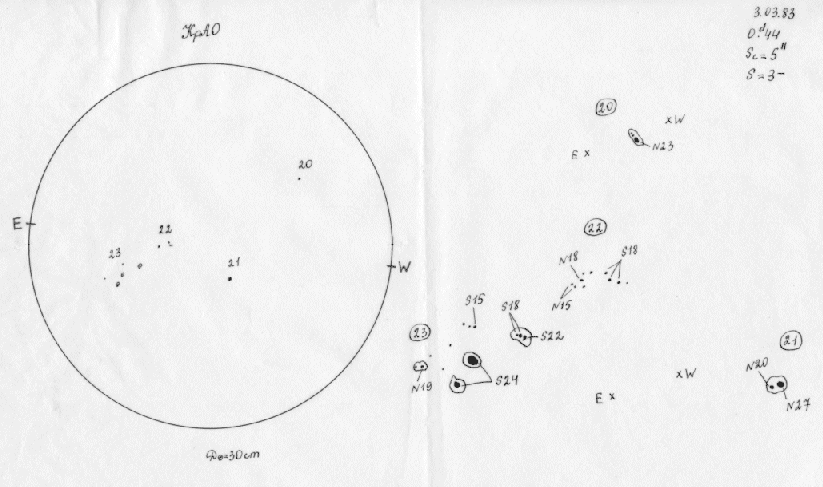 КрАО
3.03.83
0.ᵈ44
Sc=5"
S=3-
20
E
22
23
21
W
D⊙=30cm
20
xW
E x
N23
22
N18
S18
N15
S15
S18
23
S22
N19
S24
21
N20
xW
E x
N27